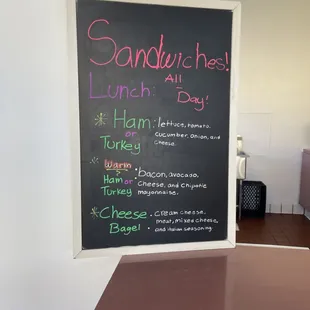 Sandwiches!
Lunch: All
Day!
* Ham: lettuce, tomato,
or cucumber, onion, and
Turkey cheese.
* Warm
> bacon, avocado,
Ham or cheese, and chipotle
Turkey mayonnaise.
* Cheese • cream cheese,
Bagel meat, mixed cheese,
• and italian seasoning